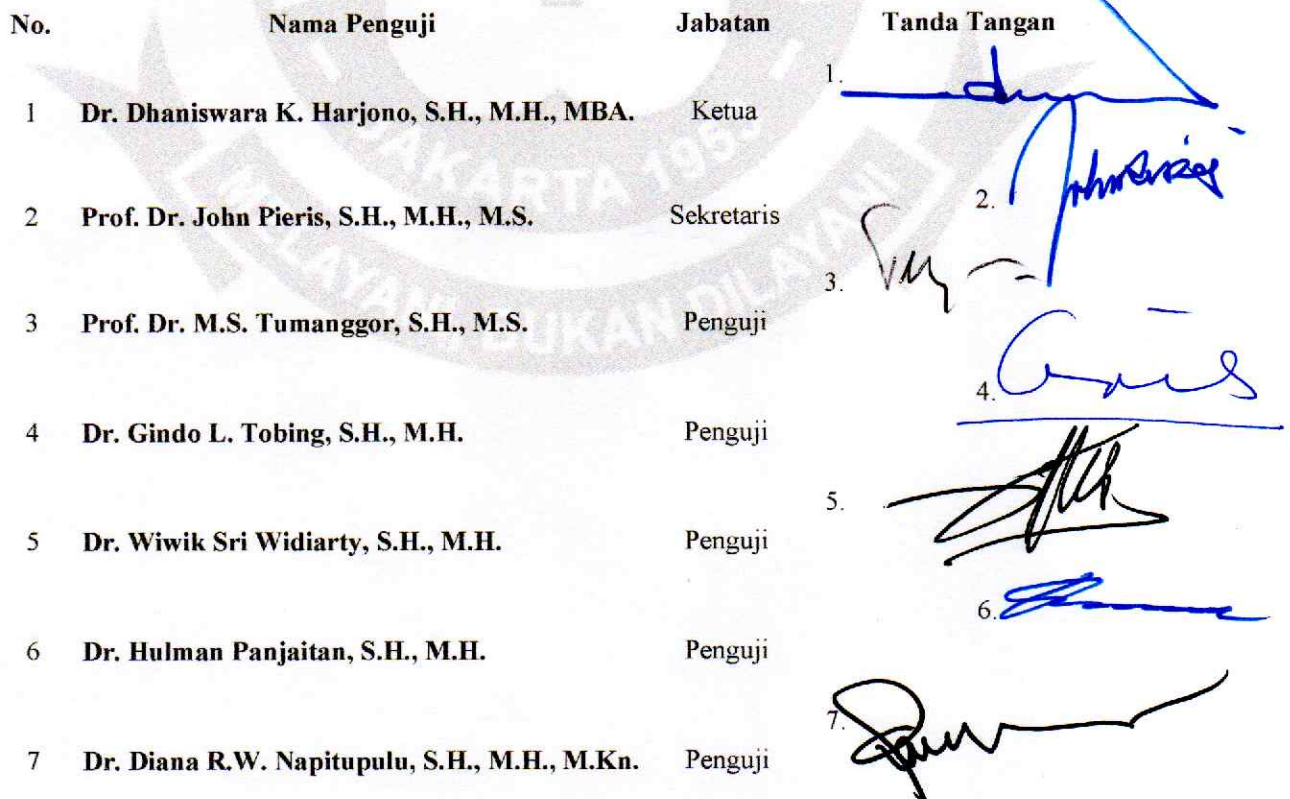 No. Nama Penguji Jabatan Tanda Tangan
1 Dr. Dhaniswara K. Harjono, S.H., M.H., MBA. Ketua 1.
2 Prof. Dr. John Pieris, S.H., M.H., M.S. Sekretaris 2.
3 Prof. Dr. M.S. Tumanggor, S.H., M.S. Penguji 3.
4 Dr. Gindo L. Tobing, S.H., M.H. Penguji 4.
5 Dr. Wiwik Sri Widiarty, S.H., M.H. Penguji 5.
6 Dr. Hulman Panjaitan, S.H., M.H. Penguji 6.
7 Dr. Diana R.W. Napitupulu, S.H., M.H., M.Kn. Penguji 7.
JAKARTA 1953
MELAYANI BUKAN DILAYANI